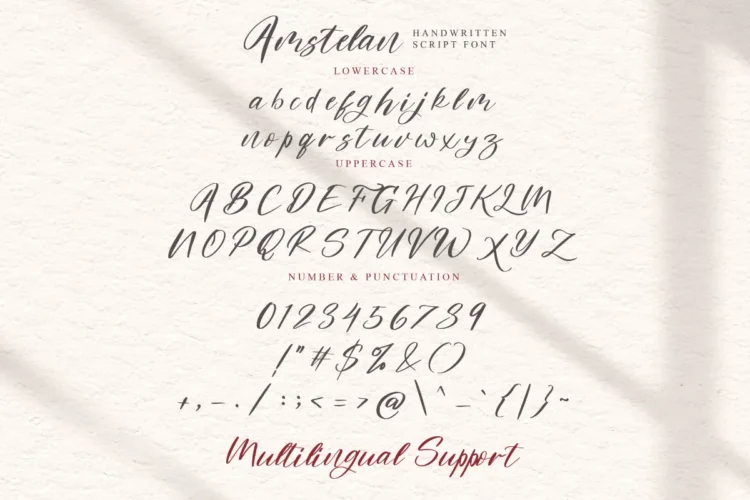 Amstelan HANDWRITTEN
SCRIPT FONT
LOWERCASE
abcdefghijklm
nopqrstuvwxyz
UPPERCASE
ABCDEFGHIJKLM
NOPQRSTUVWXYZ
NUMBER & PUNCTUATION
0123456789
!"#$%&()
+,-./:;<=>@\^_`{|}~
Multilingual Support